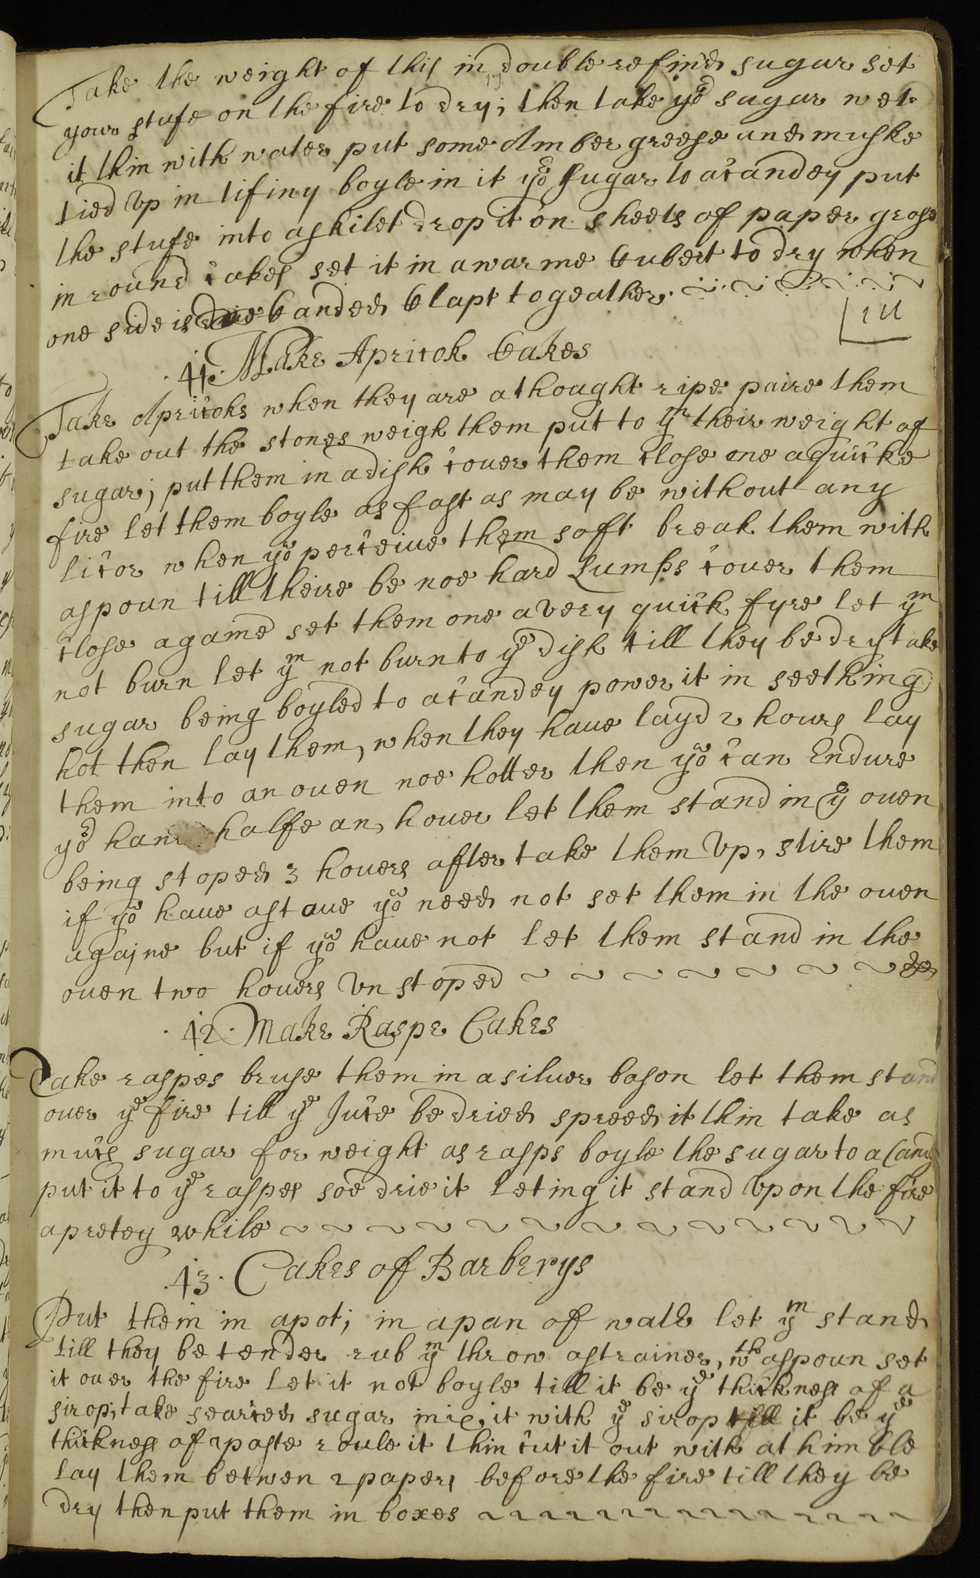 Take the weight of this in double refined sugar set
your stufe on the fire to dry; then take ye sugar wet
it thin with water put some Ambergreese and muske
tied up in tifiny boyle in it yor sugar to a candey put
the stufe into a skilet drop it on sheets of paper grose
in round cakes set it in a warme Cubert to dry when
one side is Candeed Clapt togeather
41 Make Apricok Cakes
Take Apricoks when they are a thought ripe paire them
take out the stones weigh them put to ym their weight of
sugar; put them in a dish cover them close one a quicke
fire let them boyle as fast as may be without any
licor when you perceive them soft break them with
a spoun till theire be noe hard Lumps cover them
close againe set them one a very quick fyre let ym
not burn let ym not burn to ye dish till they be dry take
sugar being boyled to a candey power it in seething
hot then lay them, when they have layd 2 hours lay
them into an oven noe hotter then you can Endure
yor hand halfe an hower let them stand in ye oven
being stoped 3 howers after take them up, stire them
if you have a stove you need not set them in the oven
againe but if you have not let them stand in the
oven two howers unstoped
42 Make Raspe Cakes
Take raspes bruse them in a silver bason let them stand
over ye fire till ye Juce be dried spreed it thin take as
much sugar for weight as rasps boyle the sugar to a Cand
put it to ye raspes soe drie it leting it stand upon the fire
a pretey while
43 Cakes of Barberys
Put them in a pot; in a pan of watr let ym stand
till they be tender rub ym throw a strainer, wth a spoun set
it over the fire let it not boyle till it be ye thickness of a
sirop, take searced sugar mix it with ye sirop till it be ye
thickness of a paste roule it thin cut it out with a thimble
lay them betwen 2 papers before the fire till they be
dry then put them in boxes